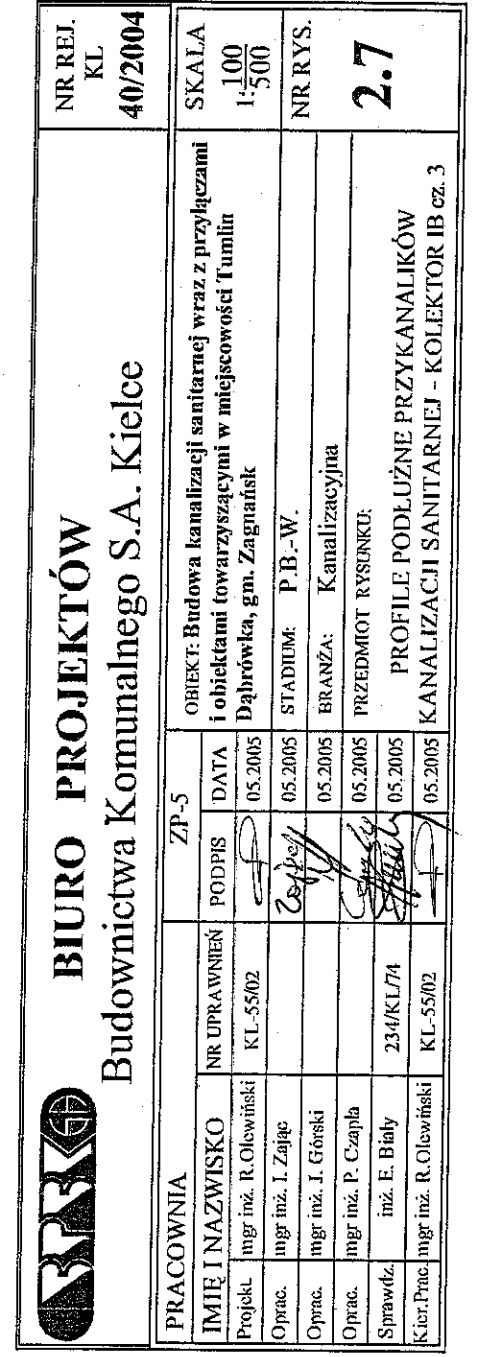 BPBK
BIURO PROJEKTÓW
Budownictwa Komunalnego S.A. Kielce
NR REJ.
KL
40/2004
PRACOWNIA
ZP-5
IMIĘ I NAZWISKO NR UPRAWNIEŃ PODPIS DATA
Projekt. mgr inż. R.Olewiński KL-55/02 05.2005
Oprac. mgr inż. I. Zając 05.2005
Oprac. mgr inż. J. Górski 05.2005
Oprac. mgr inż. P. Czapla 05.2005
Sprawdz. inż. E. Biały 234/KL/74 05.2005
Kier.Prac. mgr inż. R.Olewiński KL-55/02 05.2005
OBIEKT: Budowa kanalizacji sanitarnej wraz z przyłączami
i obiektami towarzyszącymi w miejscowości Tumlin
Dąbrówka, gm. Zagnańsk
STADIUM: P.B.-W.
BRANŻA: Kanalizacyjna
PRZEDMIOT RYSUNKU:
PROFILE PODŁUŻNE PRZYKANALIKÓW
KANALIZACJI SANITARNEJ - KOLEKTOR IB cz. 3
SKALA
1:100/500
NR RYS.
2.7